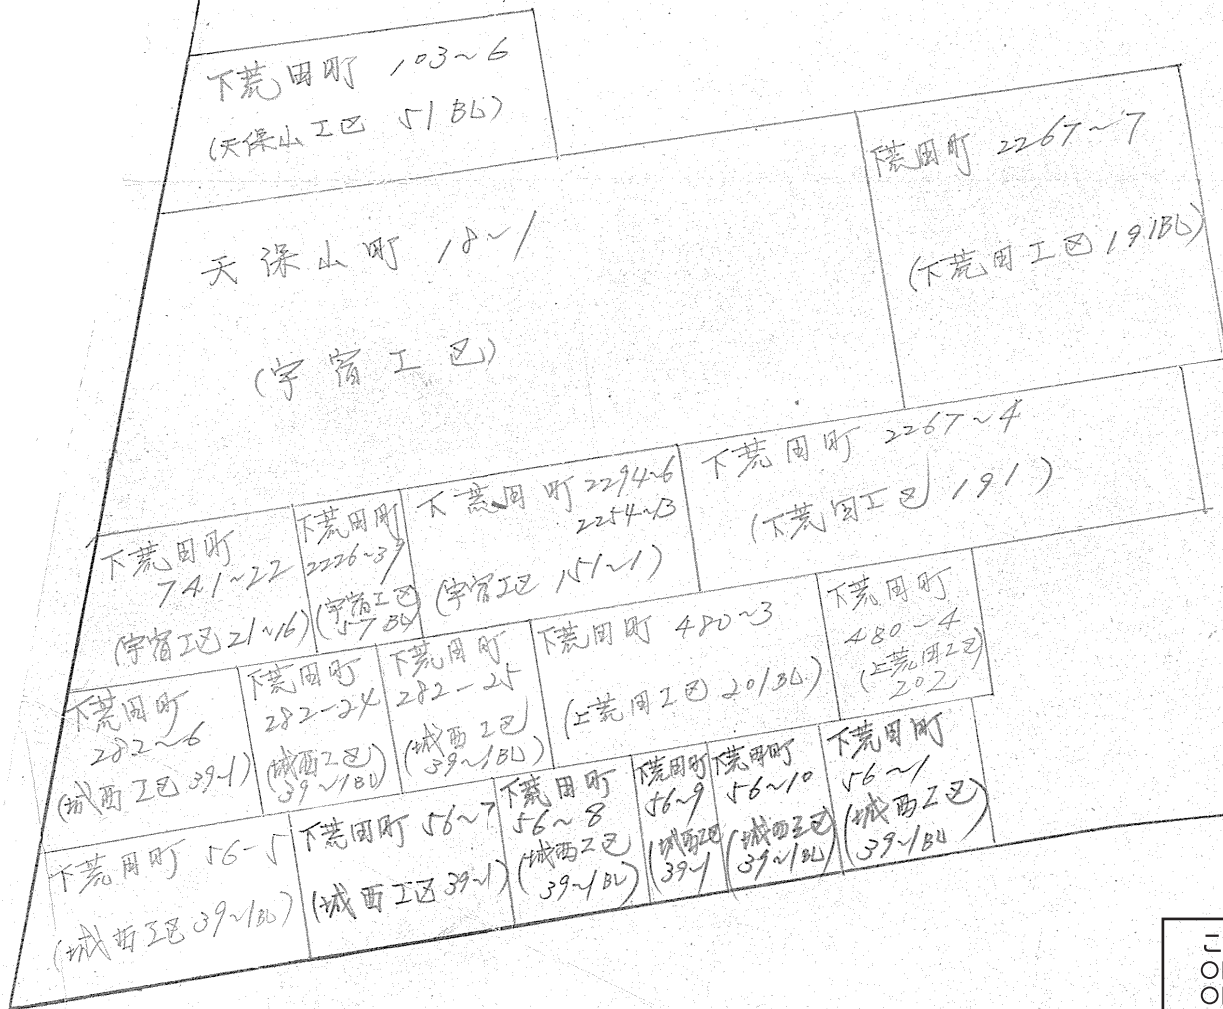 下荒田町 103~6
(天保山工区 51BL)
下荒田町 2267~7
(下荒田工区 191BL)
天保山町 18~1
(宇宿工区)
下荒田町
741~22
(宇宿工区 21~16)
下荒田町
2226~39
(宇宿工区
57BL)
下荒田町 2294~6
2254~13
(宇宿工区 151~1)
下荒田町 2267~4
(下荒田工区 191)
下荒田町
282~6
(城西工区 39~1)
下荒田町
282-24
(城西工区
39~1BL)
下荒田町
282-25
(城西工区
39~1BL)
下荒田町 480~3
(上荒田工区 201BL)
下荒田町
480-4
(上荒田工区)
202
下荒田町 56-5
(城西工区 39~1BL)
下荒田町 56~7
(城西工区 39~1)
下荒田町
56~8
(城西工区
39~1BL)
下荒田町
56~9
(城西工区
39~1
下荒田町
56~10
(城西工区
39~1BL)
下荒田町
56~1
(城西工区)
39~1BL